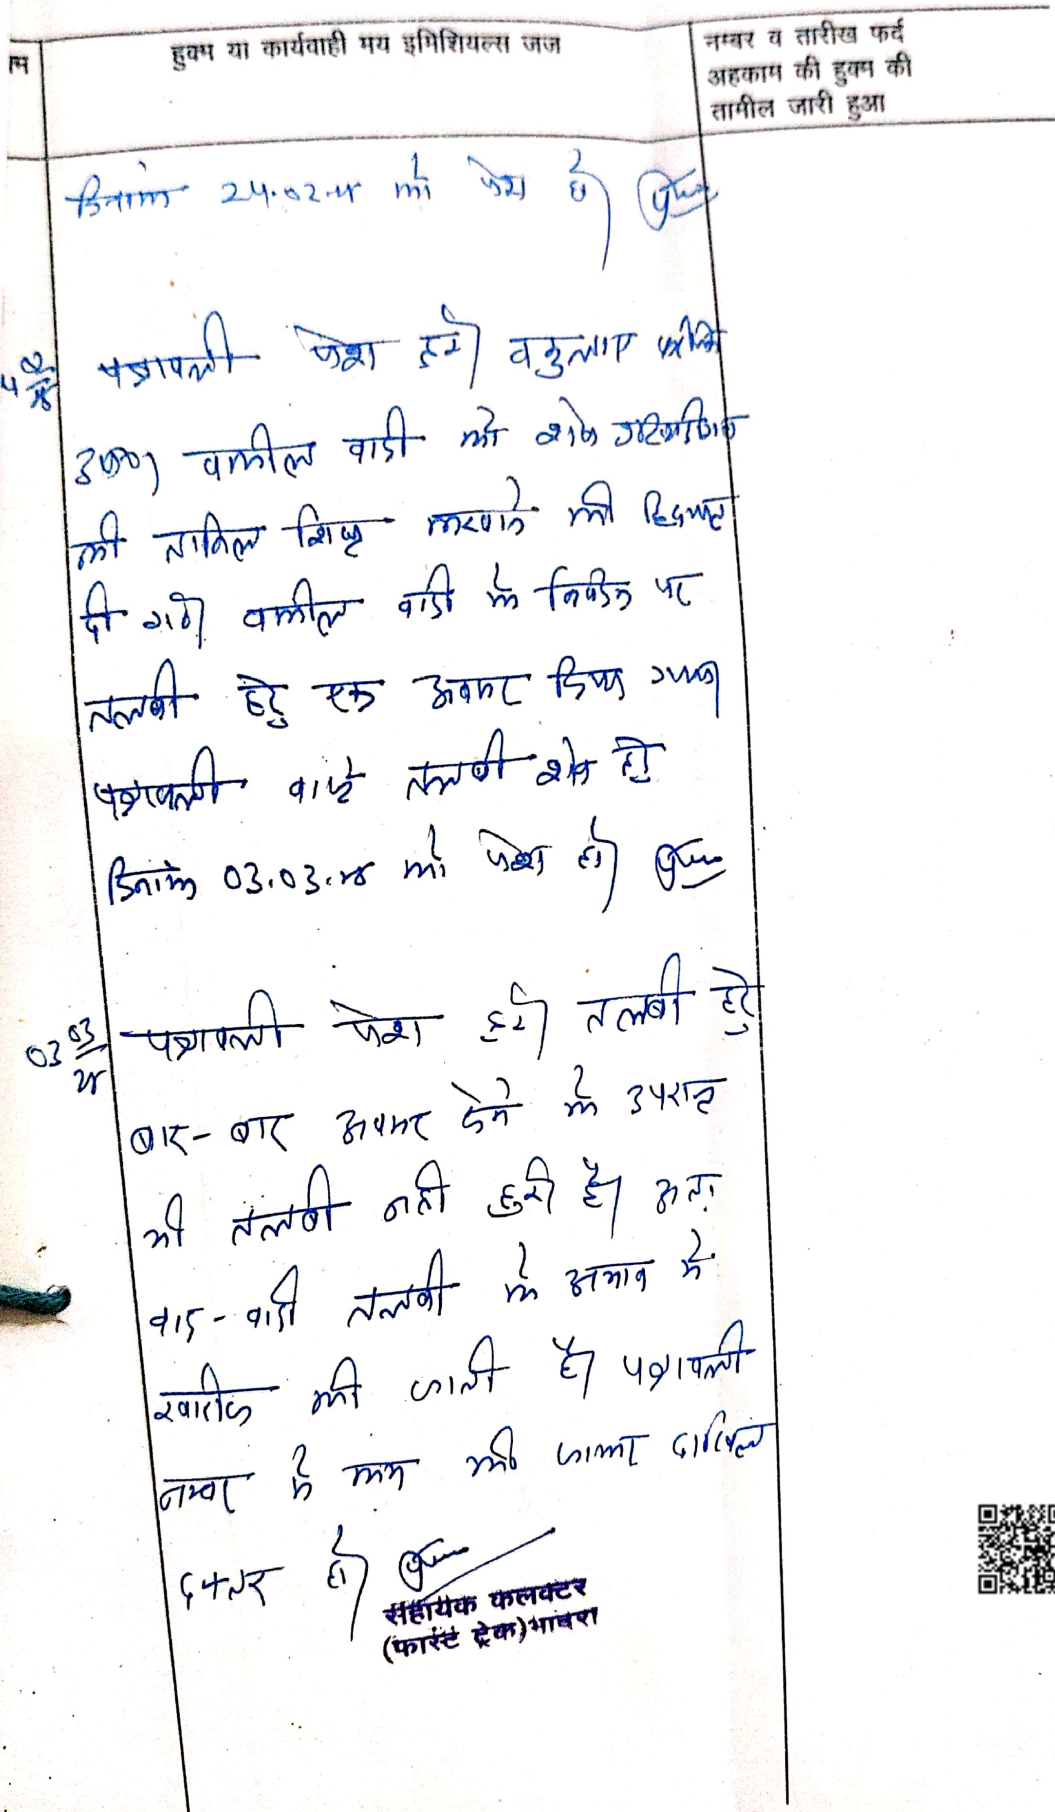 हुक्म या कार्यवाही मय इमिशियल्स जज
नम्बर व तारीख फर्द
अहकाम की हुक्म की
तामील जारी हुआ
दिनांक 24.02.25 को पेश हो।
पत्रावली पेश हुई। वकुलाए फरिकेन
उप०। वकील वादी को शेष प्रतिवादीगण
की तामिल शिघ्र करवाने की हिदायत
दी गई। वकील वादी के निवेदन पर
तलबी हेतु एक अवसर दिया गया।
पत्रावली वास्ते तलबी शेष हेतु
दिनांक 03.03.25 को पेश हो।
03 03/25
पत्रावली पेश हुई। तलबी हेतु
बार-बार अवसर देने के उपरान्त
भी तलबी नही हुयी है। अतः
वाद-वादी तलबी के अभाव मे
खारीज की जाती है। पत्रावली
नम्बर से कम की जाकर दाखिल
दफ्तर हो।
सहायक कलक्टर
(फास्ट ट्रेक)